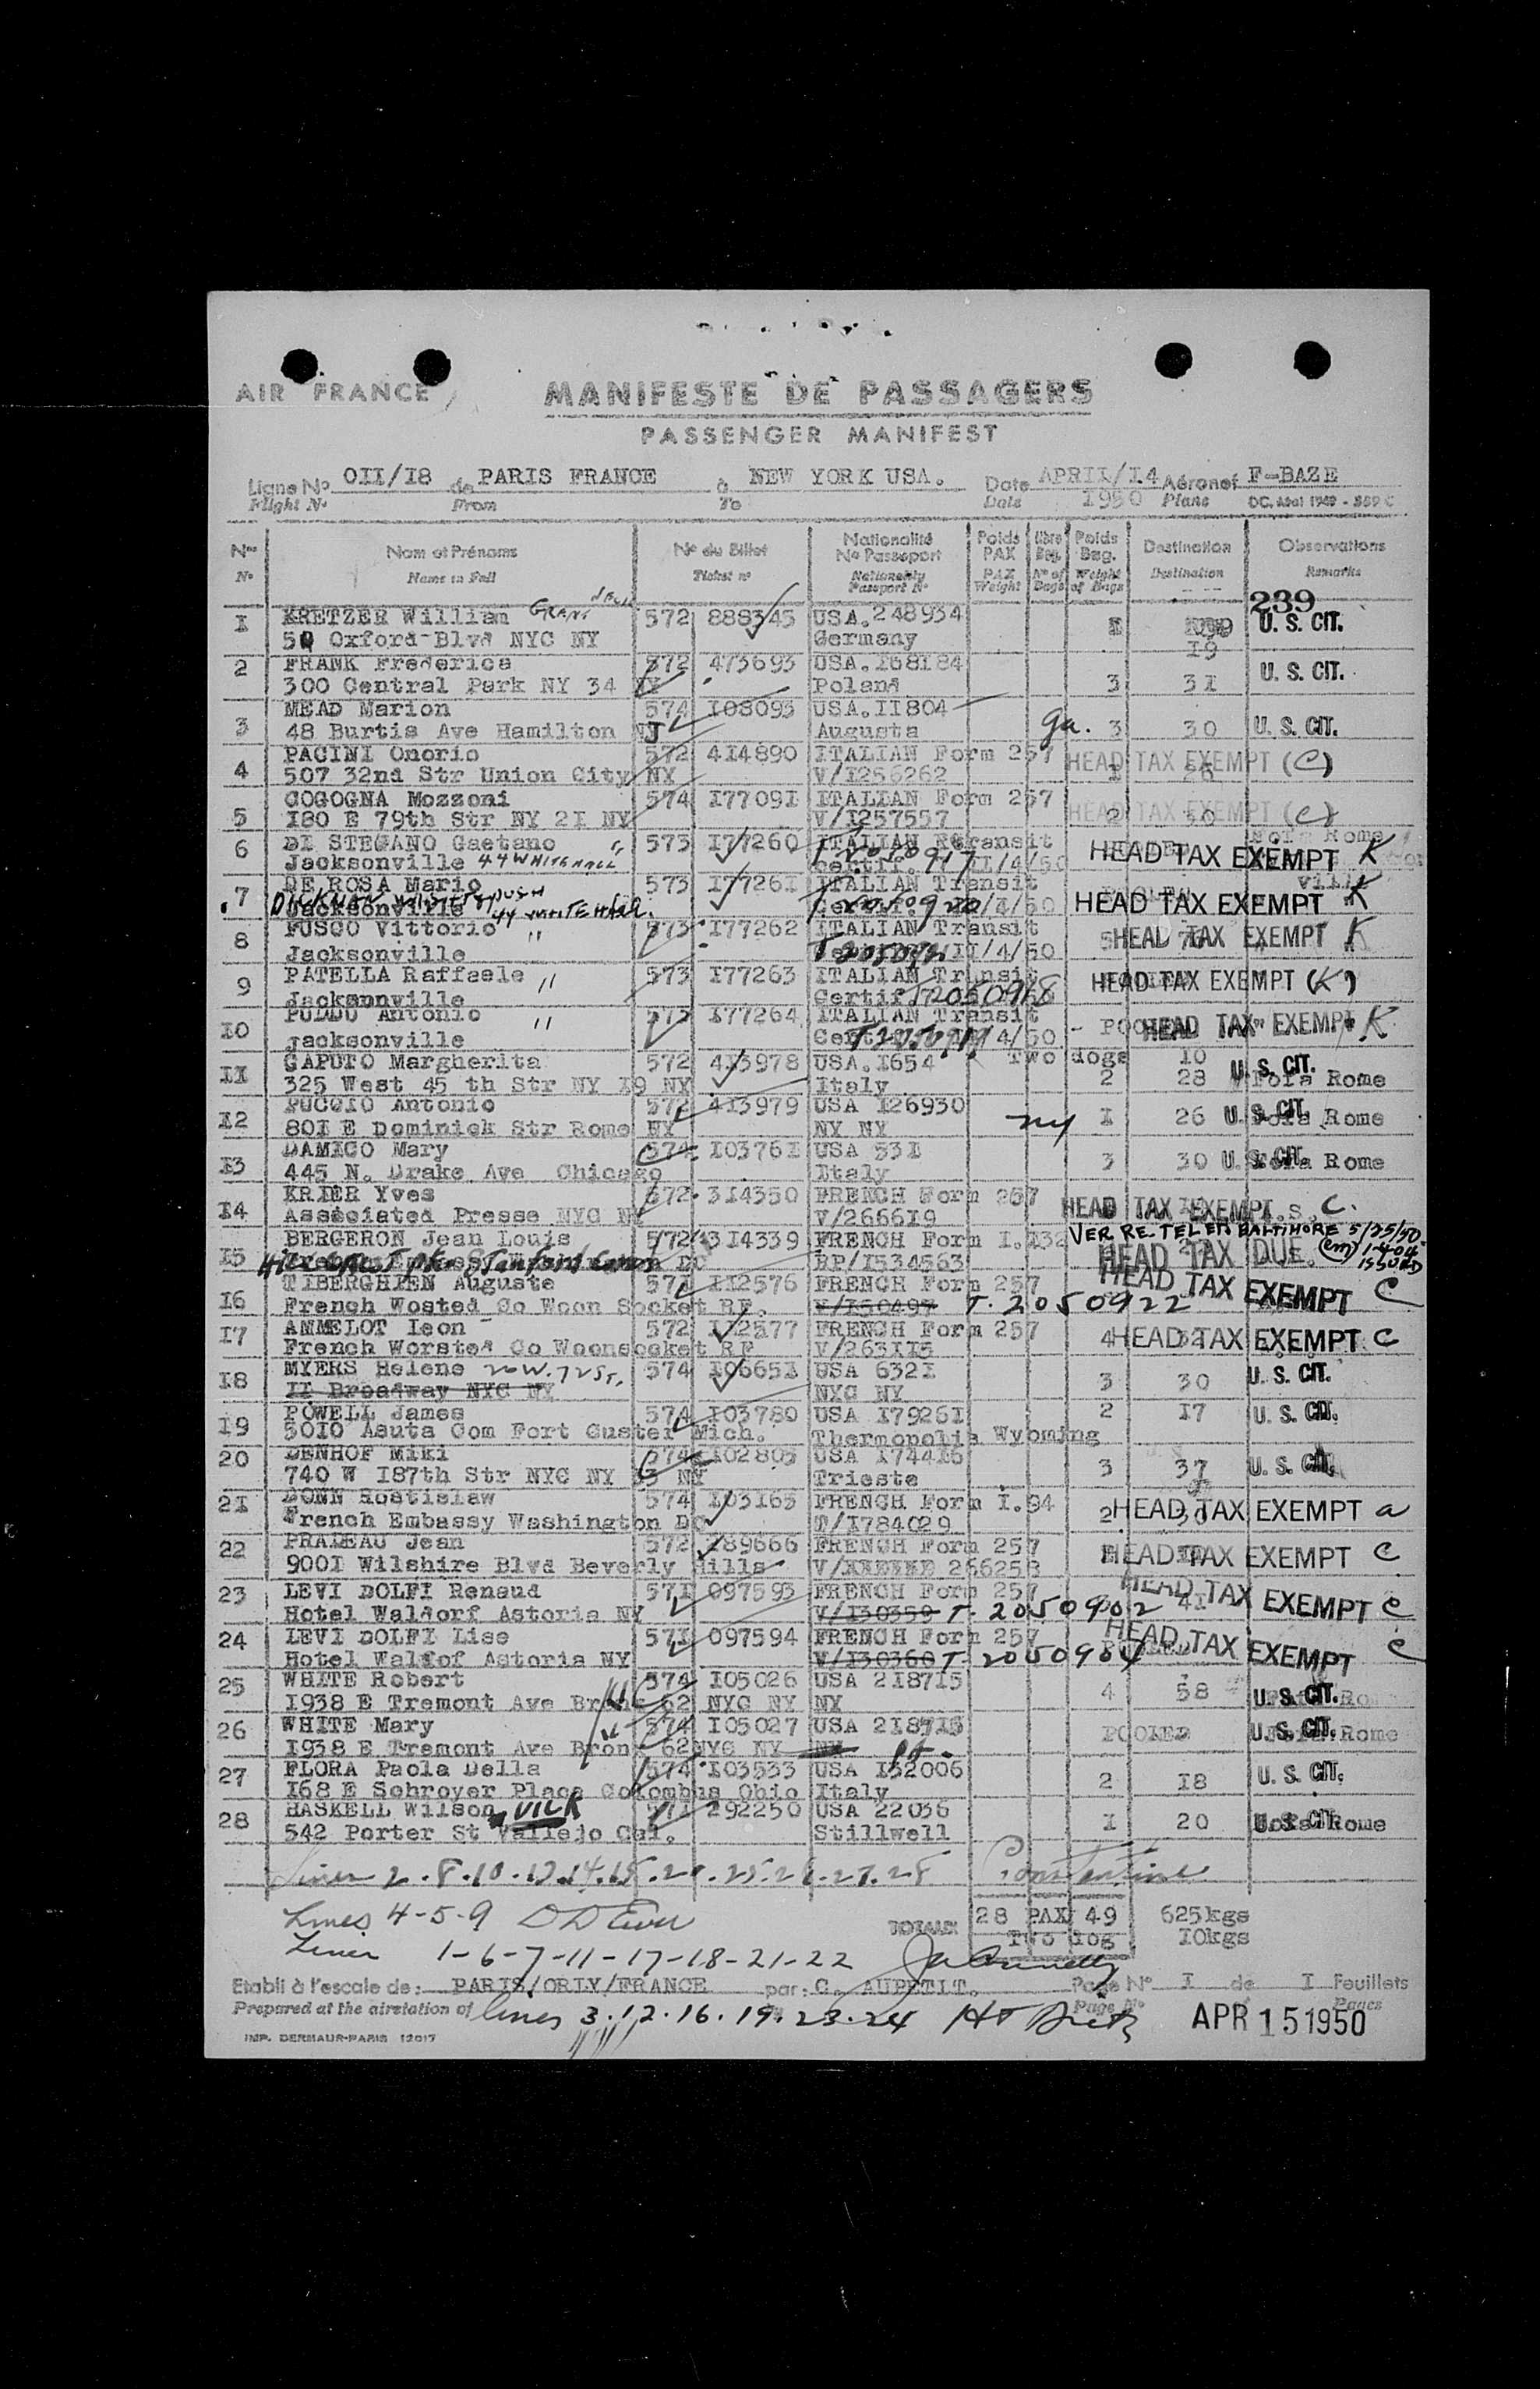 AIR FRANCE
MANIFESTE DE PASSAGERS
PASSENGER MANIFEST
Ligne No OII/I8 de PARIS FRANCE à NEW YORK USA. Date APRIL/I4 Aéronef F-BAZE
Flight No From To Date I950 Plane
Nos Nom et Prénoms No du Billet Nationalité No Passeport Poids PAX Poids Bag. Destination Observations
No Name in Full Ticket no Nationality Passport No PAX Weight No of Bags Weight of Bags Destination Remarks
239
I KRETZER William 572 888345 USA.248934 I U. S. CIT.
Oxford Blvd NYC NY Germany I9
2 FRANK Frederica 572 473693 USA.I68I84 U. S. CIT.
300 Central Park NY 34 NY Poland 3 3I
3 MEAD Marion 574 I08093 USA.II804
48 Burtis Ave Hamilton NJ Augusta Ga. 3 30 U. S. CIT.
4 PACINI Onorio 572 4I4890 ITALIAN Form 257 HEAD TAX EXEMPT (C)
507 32nd Str Union City NY V/I256262
5 COGOGNA Mozzoni 574 I7709I ITALIAN Form 257 HEAD TAX EXEMPT (C)
I80 E 79th Str NY 2I NY V/I257557 2 30
6 DI STEGANO Gaetano 573 I77260 ITALIAN transit HEAD TAX EXEMPT K
Jacksonville 44 WHITEHALL II/4/50
7 DE ROSA Mario 573 I7726I ITALIAN Transit HEAD TAX EXEMPT K
Jacksonville 44 WHITEHALL
8 FUSCO Vittorio " 573 I77262 ITALIAN Transit HEAD TAX EXEMPT K
Jacksonville II/4/50
9 PATELLA Raffaele " 573 I77263 ITALIAN Transit HEAD TAX EXEMPT (K)
Jacksonville Certif T2050918
I0 PUDDU Antonio " 573 I77264 ITALIAN Transit HEAD TAX EXEMPT K
Jacksonville 4/50
II CAPUTO Margherita 572 4I3978 USA.I654 Two dogs I0 U. S. CIT.
325 West 45 th Str NY I9 NY Italy 2 28 Rome
I2 PUCCIO Antonio 572 4I3979 USA I26930
80I E Dominick Str Rome NY NY NY ny I 26 U. S. CIT. Rome
I3 DAMICO Mary 574 I0376I USA 53I
445 N. Drake Ave Chicago Italy 3 30 U. S. CIT. Rome
I4 KRIER Yves 572 3I4350 FRENCH Form 257 HEAD TAX EXEMPT C.
Associated Presse NYC NY V/2666I9
VER RE. TEL ETD BALTIMORE 5/25/50
I5 BERGERON Jean Louis 572 3I4339 FRENCH Form I.I32 HEAD TAX DUE.
RP/I534563
I6 TIBERGHIEN Auguste 57I II2576 FRENCH Form 257 HEAD TAX EXEMPT C
French Wosted Co Woon Socket RF. V/I50497 T. 2050922
I7 AMMELOT Leon 572 II2577 FRENCH Form 257 4 HEAD TAX EXEMPT C
French Worsted Co Woonsocket RF V/263II5
I8 MYERS Helene 20 W. 72 ST. 574 I0665I USA 632I U. S. CIT.
II Broadway NYC NY NYC NY 3 30
I9 POWELL James 574 I03780 USA I7926I 2 I7 U. S. CIT.
50I0 Asuta Com Fort Custer Mich. Thermopolis Wyoming
20 DENHOF Miki 574 I02805 USA I744I6
740 W I87th Str NYC NY 33 NY Trieste 3 37 U. S. CIT.
2I DONN Rostislaw 574 I03I65 FRENCH Form I.94 2 HEAD TAX EXEMPT a
French Embassy Washington DC T/I784029
22 PRADEAU Jean 572 I89666 FRENCH Form 257 HEAD TAX EXEMPT C
900I Wilshire Blvd Beverly Hills V/ 266253
23 LEVI DOLFI Renaud 57I 097593 FRENCH Form 257 HEAD TAX EXEMPT C
Hotel Waldorf Astoria NY V/I30359 T. 2050902 4I
24 LEVI DOLFI Lise 57I 097594 FRENCH Form 257 HEAD TAX EXEMPT C
Hotel Waldof Astoria NY V/I30360 T 2050904
25 WHITE Robert 574 I05026 USA 2I87I5
I938 E Tremont Ave Bronx 62 NYC NY NY 4 58 U. S. CIT.
26 WHITE Mary 574 I05027 USA 2I87I5 POOLED U. S. CIT. Rome
I938 E Tremont Ave Bronx 62 NYC NY NY
27 FLORA Paola Della 574 I03533 USA I32006 2 I8 U. S. CIT.
I68 E Schroyer Place Colombus Ohio Italy
28 HASKELL Wilson VICK 57I 292250 USA 22036 I 20 U.S. CIT. Rome
542 Porter St Vallejo Cal. Stillwell
Lines 4-5-9
TOTAUX 28 PAX 49 625kgs
Two dog I0kgs
Lines 1-6-7-11-17-18-21-22
Etabli à l'escale de: PARIS/ORLY/FRANCE par: C. AUPETIT. Page No I de I Feuillets
Prepared at the airstation of Page No Pages
lines 3.12.16.19.23.24
APR 15 1950
IMP. DERMAUR-PARIS 12017